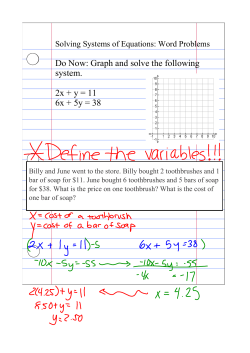 Solving Systems of Equations: Word Problems
Do Now: Graph and solve the following
system.
2x + y = 11
6x + 5y = 38
*Define the variables!!!
Billy and June went to the store. Billy bought 2 toothbrushes and 1
bar of soap for $11. June bought 6 toothbrushes and 5 bars of soap
for $38. What is the price on one toothbrush? What is the cost of
one bar of soap?
X = cost of a toothbrush
Y = cost of a bar of soap
(2x + 1y = 11)-5 6x + 5y = 38)
-10x - 5y = -55 -10x - 5y = -55
-4x = -17
2(4.25) + y = 11 x = 4.25
8.50 + y = 11
y = 2.50